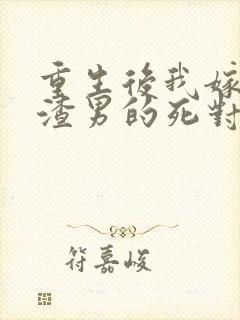 重生後我嫁
渣男的死對
符嘉峻